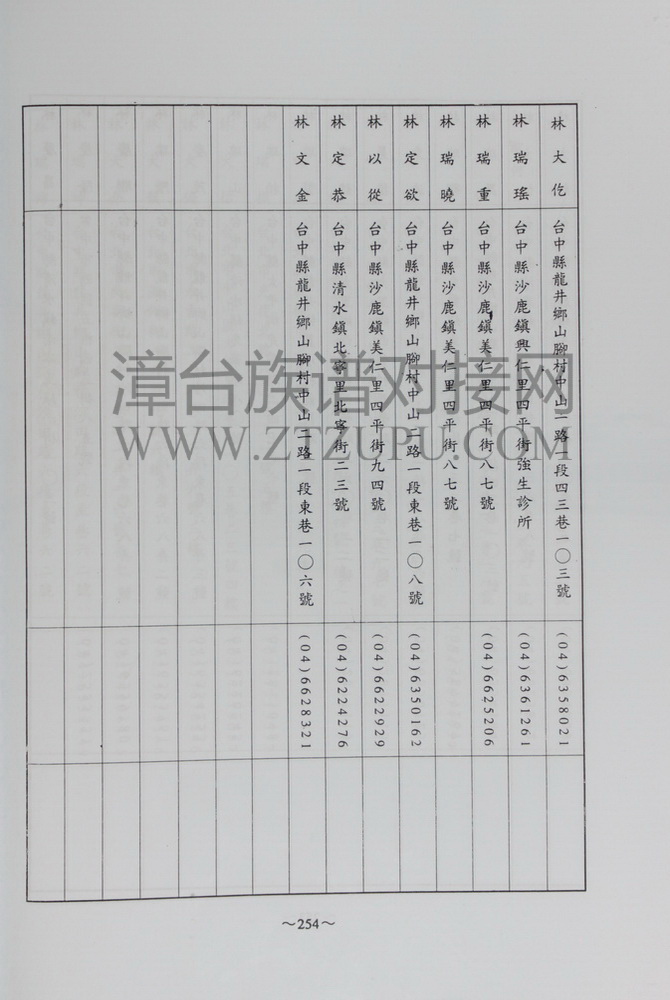 林大仡
台中縣龍井鄉山腳村中山二路一段四三巷一〇三號
(04)6358021
林瑞瑤
台中縣沙鹿鎮興仁里四平街強生診所
(04)6361261
林瑞重
台中縣沙鹿鎮美仁里四平街八七號
(04)6625206
林瑞曉
台中縣沙鹿鎮美仁里四平街八七號
林定欲
台中縣龍井鄉山腳村中山二路一段東巷一〇八號
(04)6350162
林以從
台中縣沙鹿鎮美仁里四平街九四號
(04)6622929
林定恭
台中縣清水鎮北寧里北寧街二三號
(04)6224276
林文金
台中縣龍井鄉山腳村中山二路一段東巷一〇六號
(04)6628321
漳台族谱对接网
WWW.ZTZUPU.COM
～254～